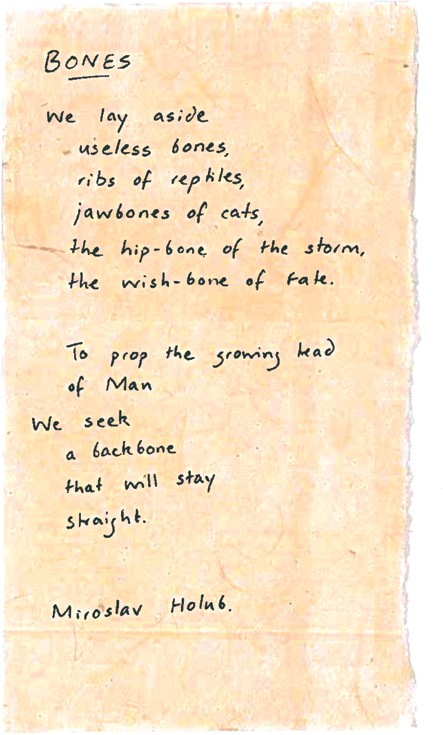 BONES
We lay aside
useless bones,
ribs of reptiles,
jawbones of cats,
the hip-bone of the storm,
the wish-bone of Fate.
To prop the growing head
of Man
We seek
a backbone
that will stay
straight.
Miroslav Holub.